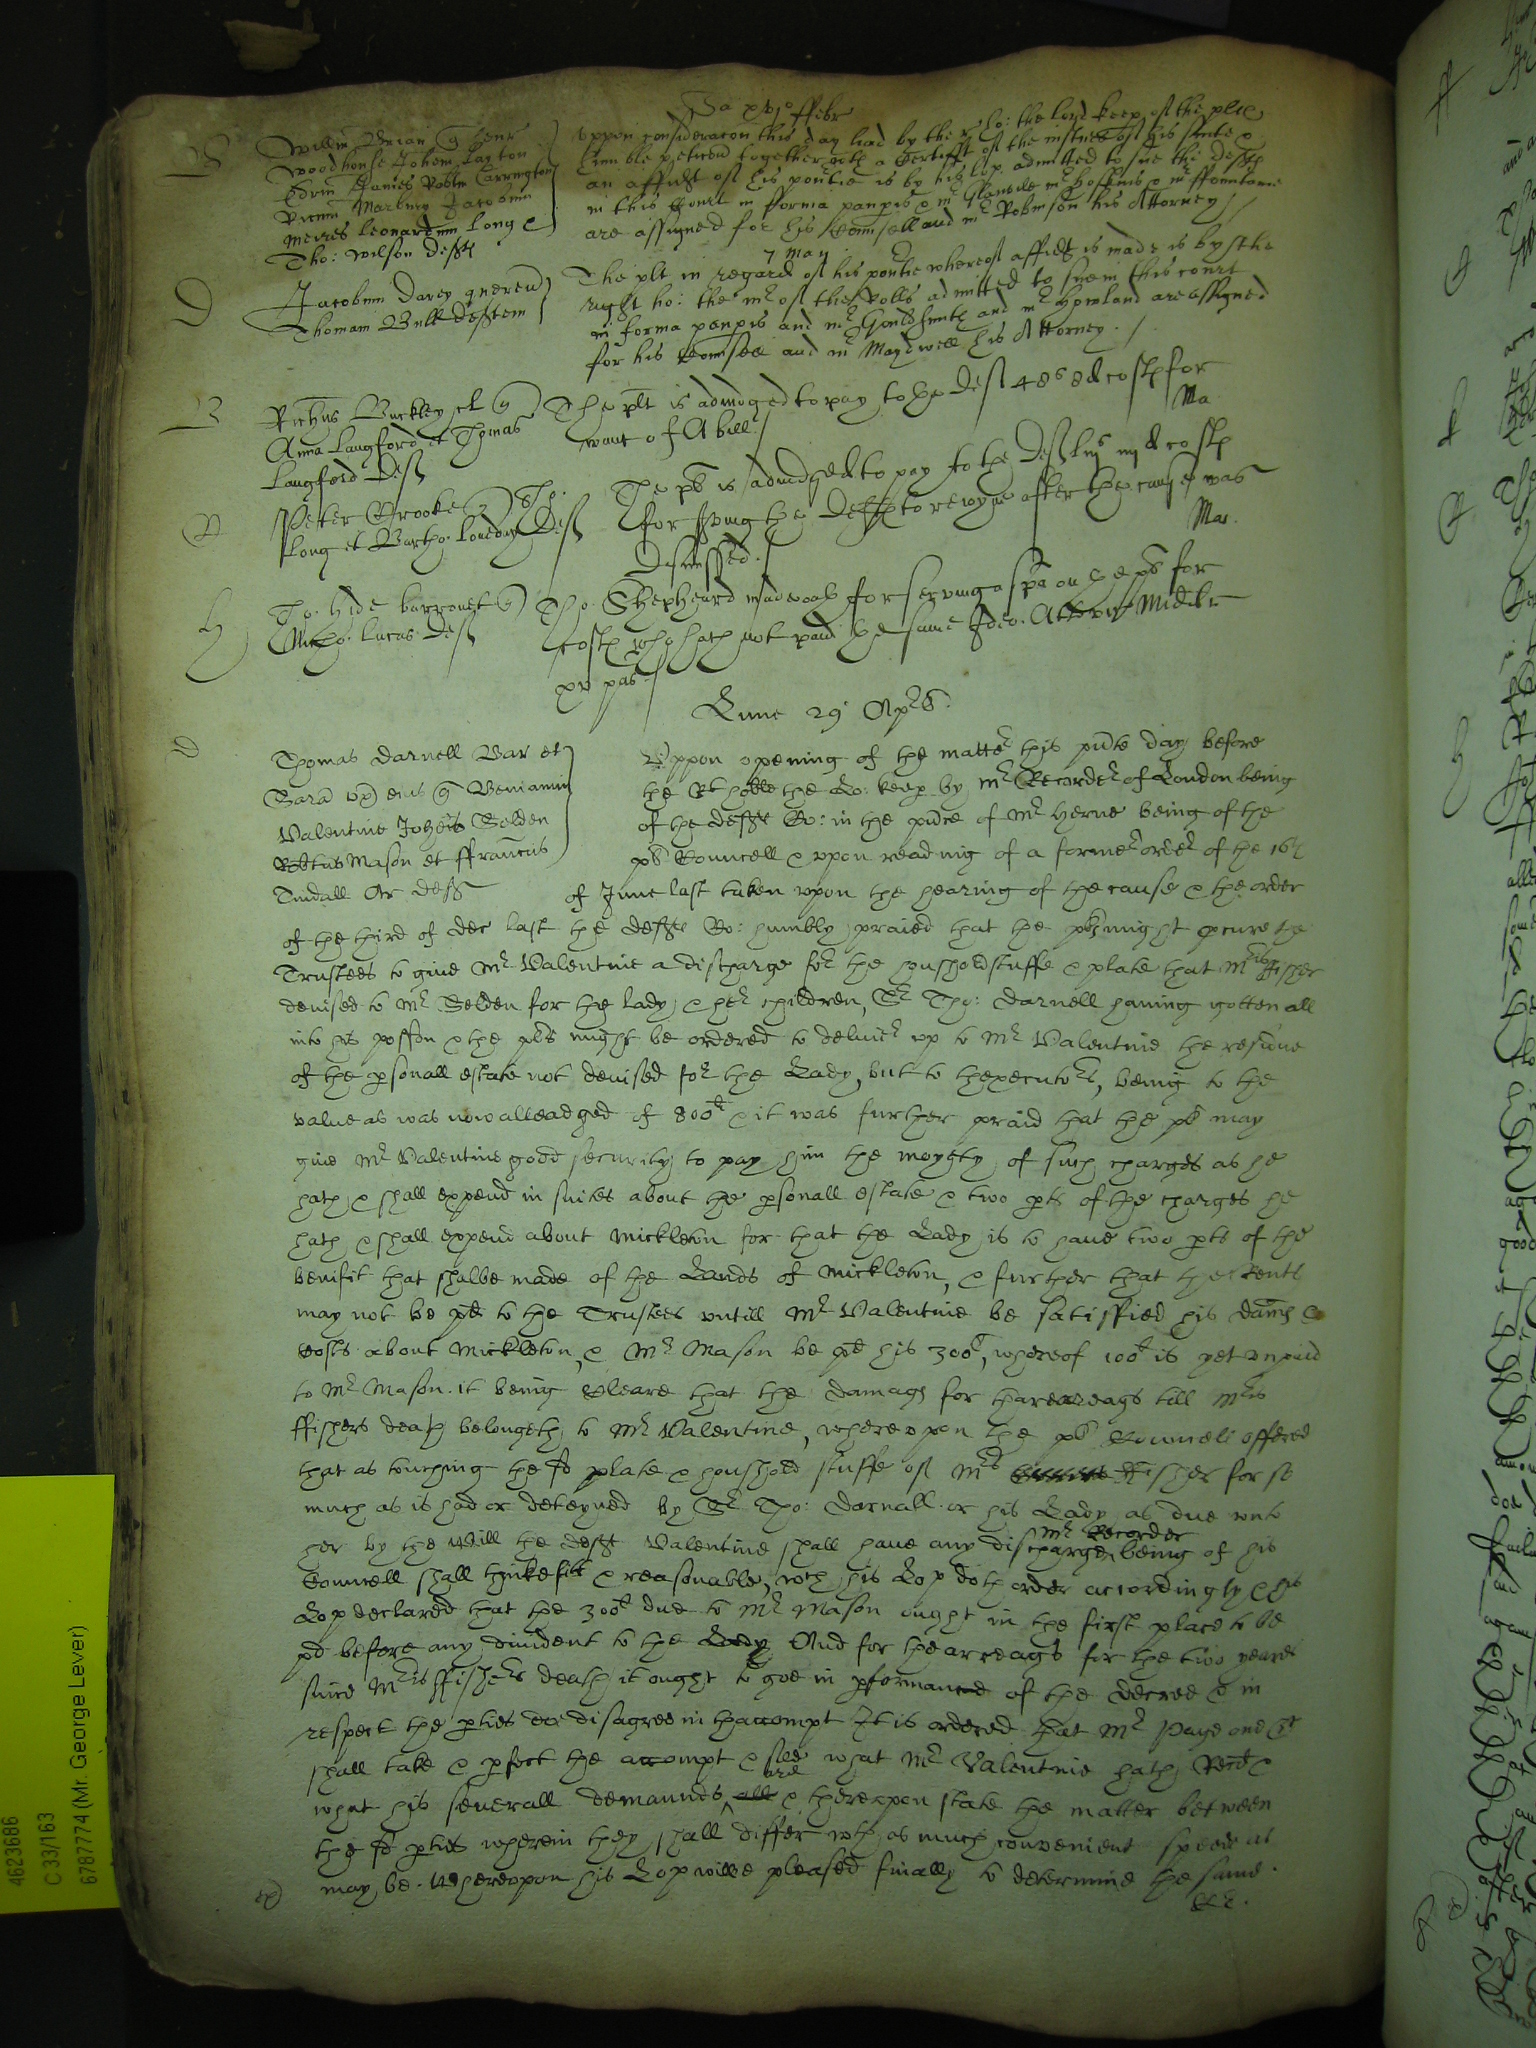 xvio ffebr
B
Willm Brian q Henr
Woodhouse Johem Layton
Edrm James Robtm Carrington
Ricum Marbury Jacobum
Meires Leonardum Long &
Tho: Wilson defts
Uppon consideracon this day had by the r ho: the lord keep of the plts
humble peticon together with a Certifft of the iustnes of his suite &
an affidt of his povtie is by his lop admitted to sue the defts
in this Court in forma paupis & mr mr Hoskins & mr ffountaine
are assigned for his Counsell and mr Robinson his Attorney
7 May
D
Jacobum Davey querend
Thomam Bull deftem
The plt in regard of his povtie whereof affidt is made is by the
right ho: the mr of the Rolls admitted to sue in this court
in forma paupis and mr Gouldsmith and mr Howland are assigned
for his Counsell and mr Maydwell his Attorney
B
Richus Buckley cl q
Anna Langford et Thomas
Langford Deft
The plt is adiudged to pay to the Deft 48s 8d costs for
want of A bill
Ma
B
Peter Brooke q Tho:
Long et Bartho: Deft
The plt is adiudged to pay to the Deft costs
for the Deft to reioyne after the cause was
dismissed
Mar.
H
To: Hide barronet q
Micho: Lucas Deft
Tho: Shepheard made oath for serving a spa on the plt for
costs who hath not paid the same Ideo Attach Midd
xv pas
Lune 29 Aprl
D
Thomas Darnell Bar et
Sara vx eius q Beniamin
Valentine Johes Selden
Robtus Mason et ffrancus
Tindall Ar defts
Uppon opening of the matter this pnte day before
the Rt hoble the Lo: keep by mr Recorder of London being
of the defts Co: in the pnce of Mr Herne being of the
plts Councell & vpon reading of a former order of the 16th
of June last taken vpon the hearing of the cause & the order
of the third of Dec last the defts Co: humbly praied that the plts might pcure the
Trustees to give Mr Valentine a discharge for the housholdstuffe & plate that Mris ffisher
devised to Mr Selden for the lady & her children, Sr Tho: Darnell having gotten all
into his posson & the plts might be ordered to deliver vp to Mr Valentine the residue
of the psonall estate not devised for the Lady, but to thexecutors, being to the
value as was now alleadged of 800l & it was further praid that the plt may
give Mr Valentine good security to pay him the moyety of such charges as he
hath & shall expend in suites about the psonall estate & two pts of the charges he
hath & shall expend about Mickleton for that the Lady is to have two pts of the
benifit that shalbe made of the Lands of Mickleton, & further that the Rents
may not be pd to the Trustees vntill Mr Valentine be satisfied his dams &
Costs about Mickleton, & Mr Mason be pd his 300l, whereof 100l is yet vnpaid
to Mr Mason. it being Cleare that the damags for tharrerags till Mris
ffishers death belongeth to Mr Valentine, wherevpon the plts Councell offered
that as touching the sd plate & houshold stuffe of Mris ffisher for so
much as is had or deteyned by Sr Tho: Darnall or his Lady as due vnto
her by the Will the deft Valentine shall have any discharge mr Recorder being of his
Councell shall thinke fitt & reasonable, wch his Lop doth order accordingly & his
Lop declared that the 300l due to Mr Mason ought in the first place to be
pd before any divident to the Lady And for the arreags for the two yeares
since Mris ffishers death it ought to goe in pformance of the decree & in
respect the pties doe disagree in thaccompt It is ordered that Mr Page one &c
shall take & pfect the accompt & see what Mr Valentine hath Recd &
what his severall demaunds are & therevpon state the matter between
the sd pties wherein they shall differ with as much convenient speed as
may be. Wherevpon his Lop wilbe pleased finally to determine the same.
&c.
ex
4623686
C 33/163
6787774 (Mr. George Lever)